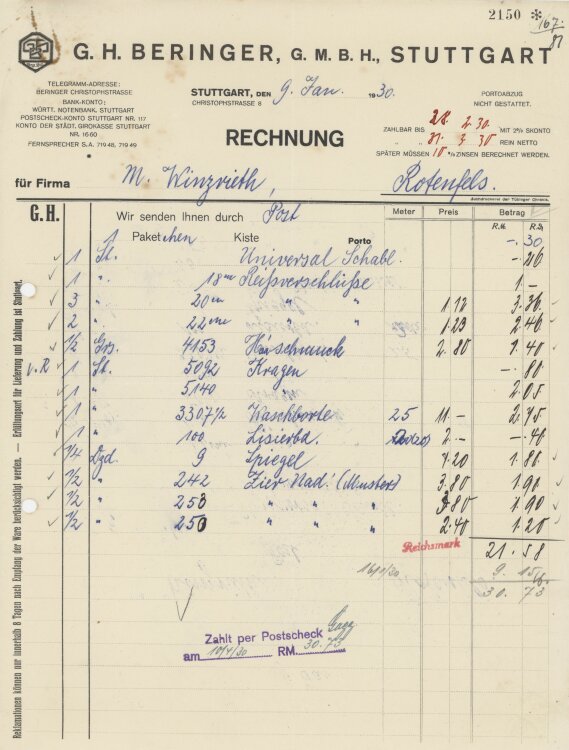 2150 *
167.
G. H. BERINGER, G. M. B. H., STUTTGART
TELEGRAMM-ADRESSE:
BERINGER CHRISTOPHSTRASSE
BANK-KONTO:
WÜRTT. NOTENBANK, STUTTGART
POSTSCHECK-KONTO STUTTGART NR. 117
KONTO DER STÄDT. GIROKASSE STUTTGART
NR. 1660
FERNSPRECHER S.A. 719 48, 719 49
STUTTGART, DEN 9. Jan. 1930.
CHRISTOPHSTRASSE 8
PORTOABZUG
NICHT GESTATTET.
RECHNUNG
ZAHLBAR BIS 28. 2. 30. MIT 2% SKONTO
" 31. 3. 30 REIN NETTO
SPÄTER MÜSSEN 10 % ZINSEN BERECHNET WERDEN.
für Firma M. Winzrieth, Rotenfels.
Selbstdruckerei der Tübinger Chronik.
G.H. Wir senden Ihnen durch Post Meter Preis Betrag
R.M. R.₰
1 Paketchen Kiste Porto -. 30
1 St. Universal Schabl. -. 26
1 " 18 cm Reißverschlüße 1 —
3 " 20 cm " " 1.12 3.36
2 " 22 cm " " 1.23 2.46
1/2 Grs. 4153 Haarschmuck 2.80 1.40
v.R 1 St. 5092 Kragen —. 80
1 " 5140 " 2.05
1 " 3307 1/2 Waschborte 25 11.— 2.75
1 " 100 Lisierba. 2.— —. 40
1/4 Dzd. 9 Spiegel 7.20 1.80
1/2 " 242 Zier Nad. (Muster) 3.80 1.90
1/2 " 253 " " " 3.80 1.90
1/2 " 250 " " " 2.40 1.20
Reichsmark 21.58
16/1/30 9. 15
30. 73
Zahlt per Postscheck
am 10/4/30 RM. 30.73
Reklamationen können nur innerhalb 8 Tagen nach Empfang der Ware berücksichtigt werden. — Erfüllungsort für Lieferung und Zahlung ist Stuttgart.